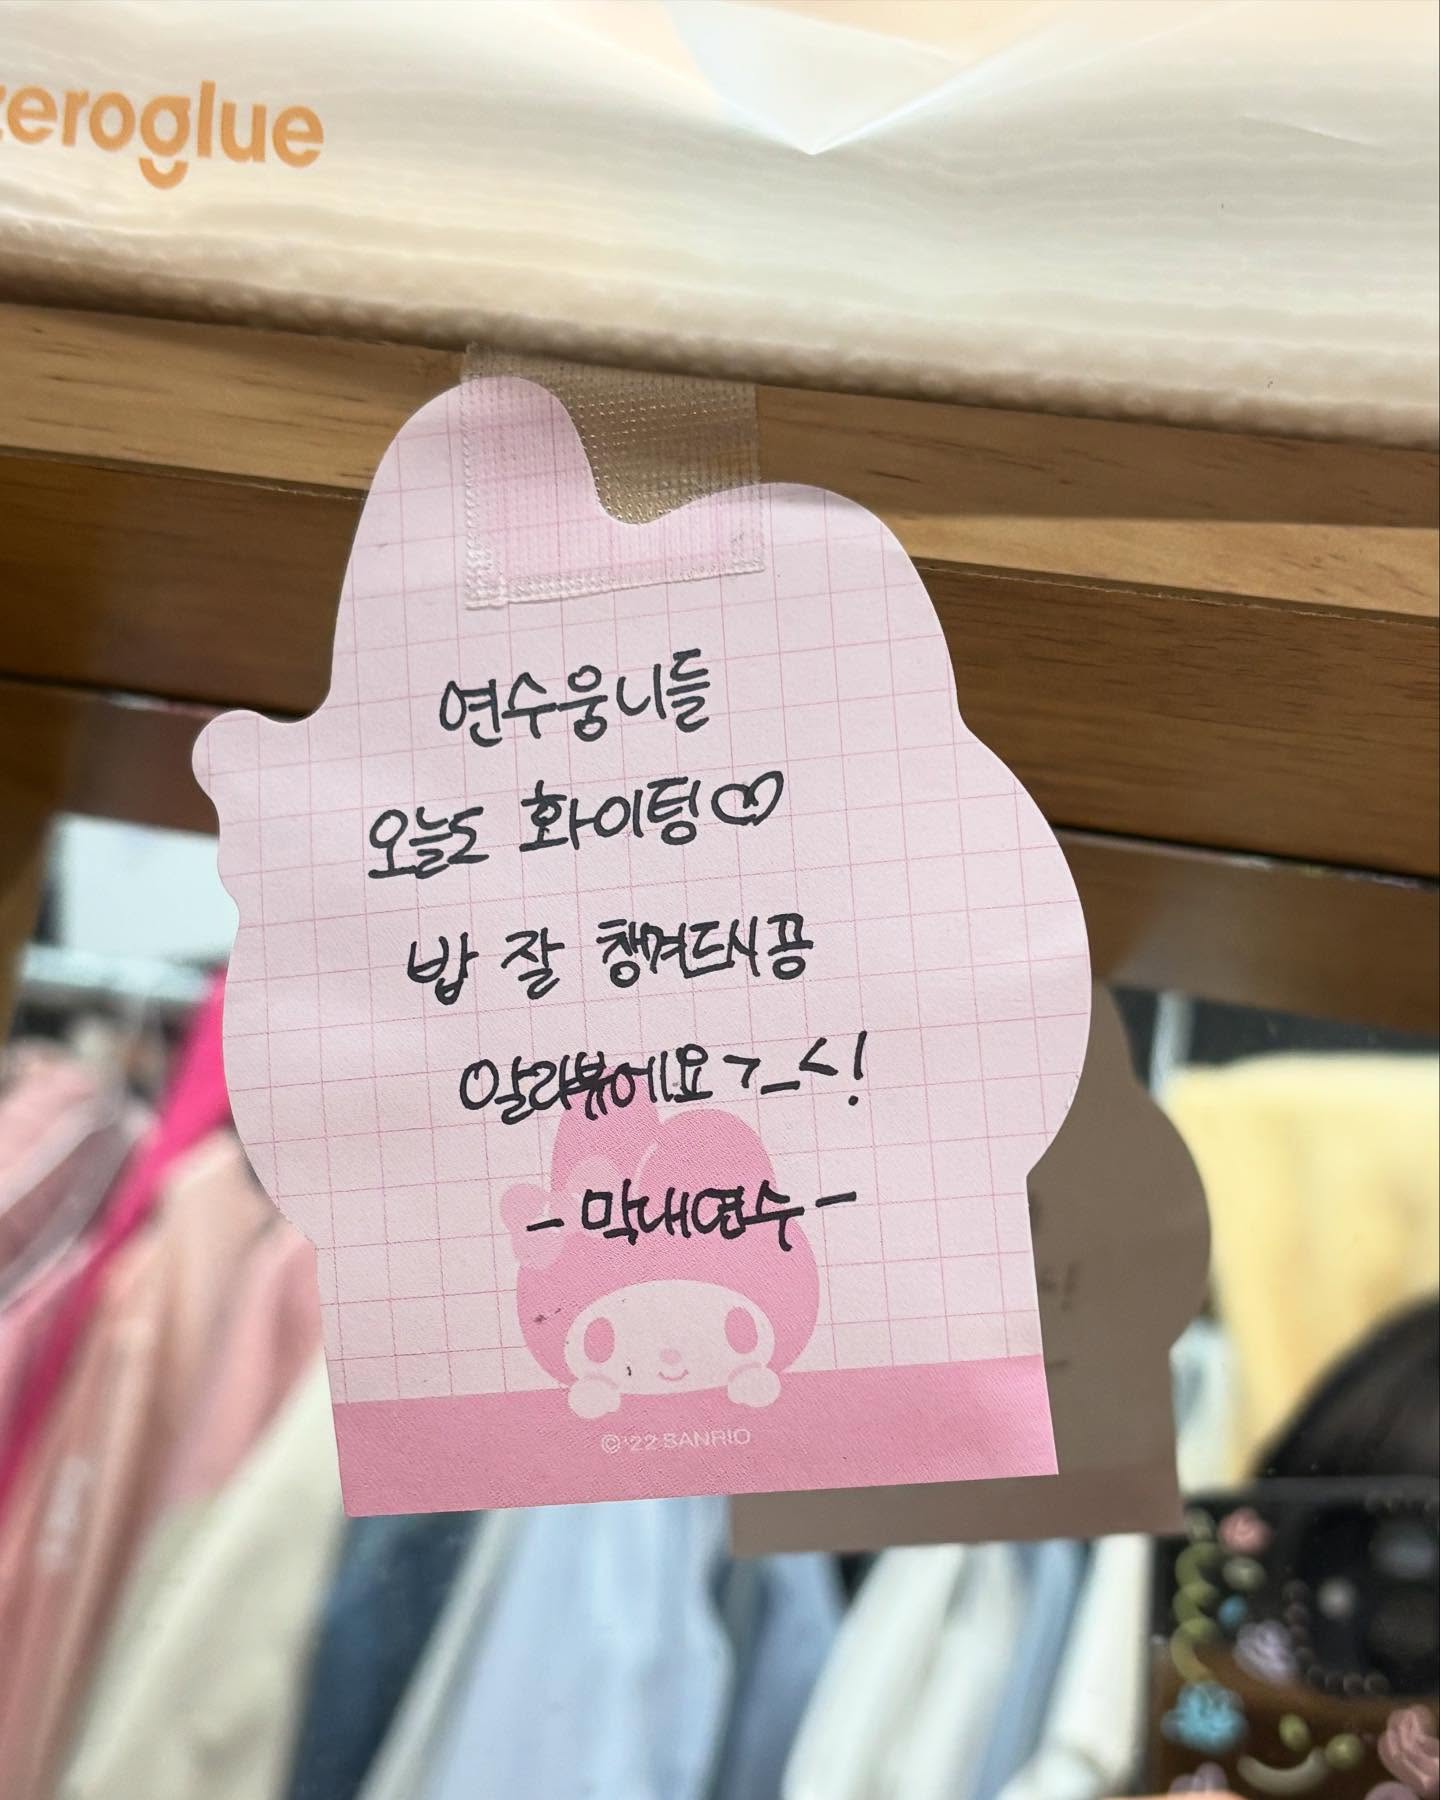 zeroglue
연수웅니들
오늘도 화이텅♡
밥 잘 챙겨드시끙
알라뷰에요 >_<!
- 막내연수 -
©'22 SANRIO